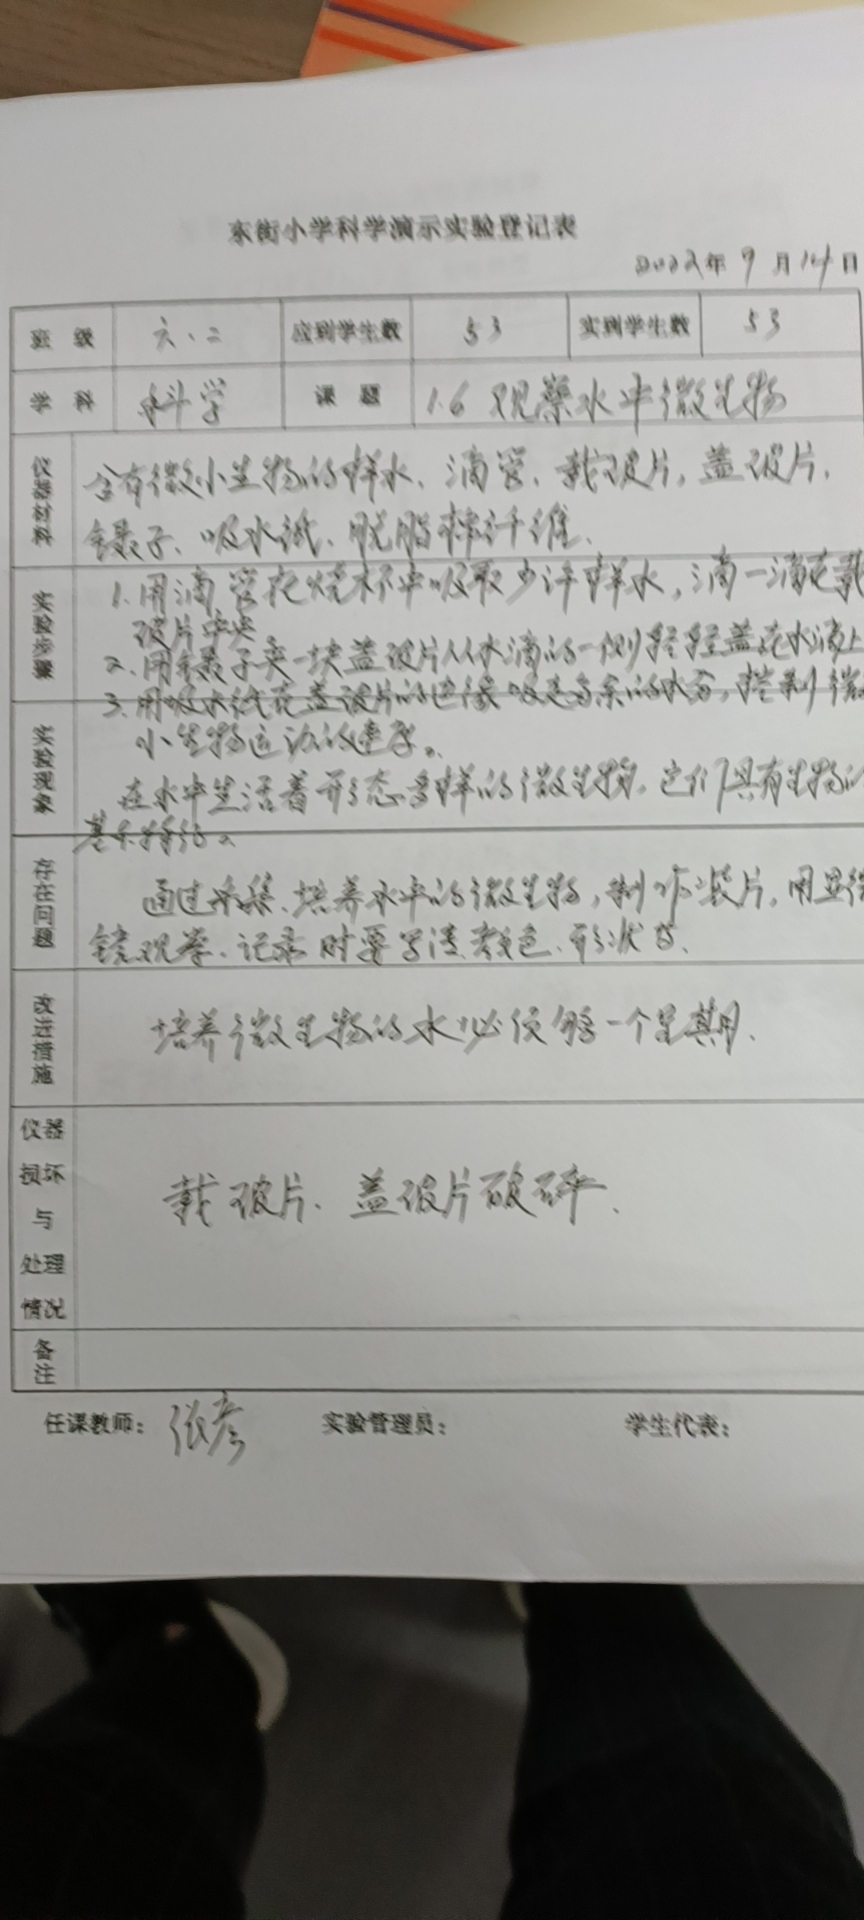 东街小学科学演示实验登记表
2022年 9 月 14 日
班 级 六.二 应到学生数 53 实到学生数 53
学 科 科学 课 题 1.6 观察水中微生物
仪器材料 含有微小生物的样水、滴管、载玻片,盖玻片,
镊子、吸水纸、脱脂棉纤维、
实验步骤 1.用滴管在烧杯中吸取少许样水,滴一滴在载
玻片中央
2.用镊子夹一块盖玻片从水滴的一侧轻轻盖在水滴上
3.用吸水纸在盖玻片的边缘吸走多余的水分,控制微
小生物运动的速度。
实验现象 在水中生活着形态多样的微生物,它们具有生物的
基本特征。
存在问题 通过采集、培养水中的微生物,制作装片,用显微
镜观察、记录时要写清颜色、形状等、
改进措施 培养微生物的水必须够一个星期、
仪器损坏与处理情况 载玻片、盖玻片破碎、
备注
任课教师: 张彦 实验管理员: 学生代表: